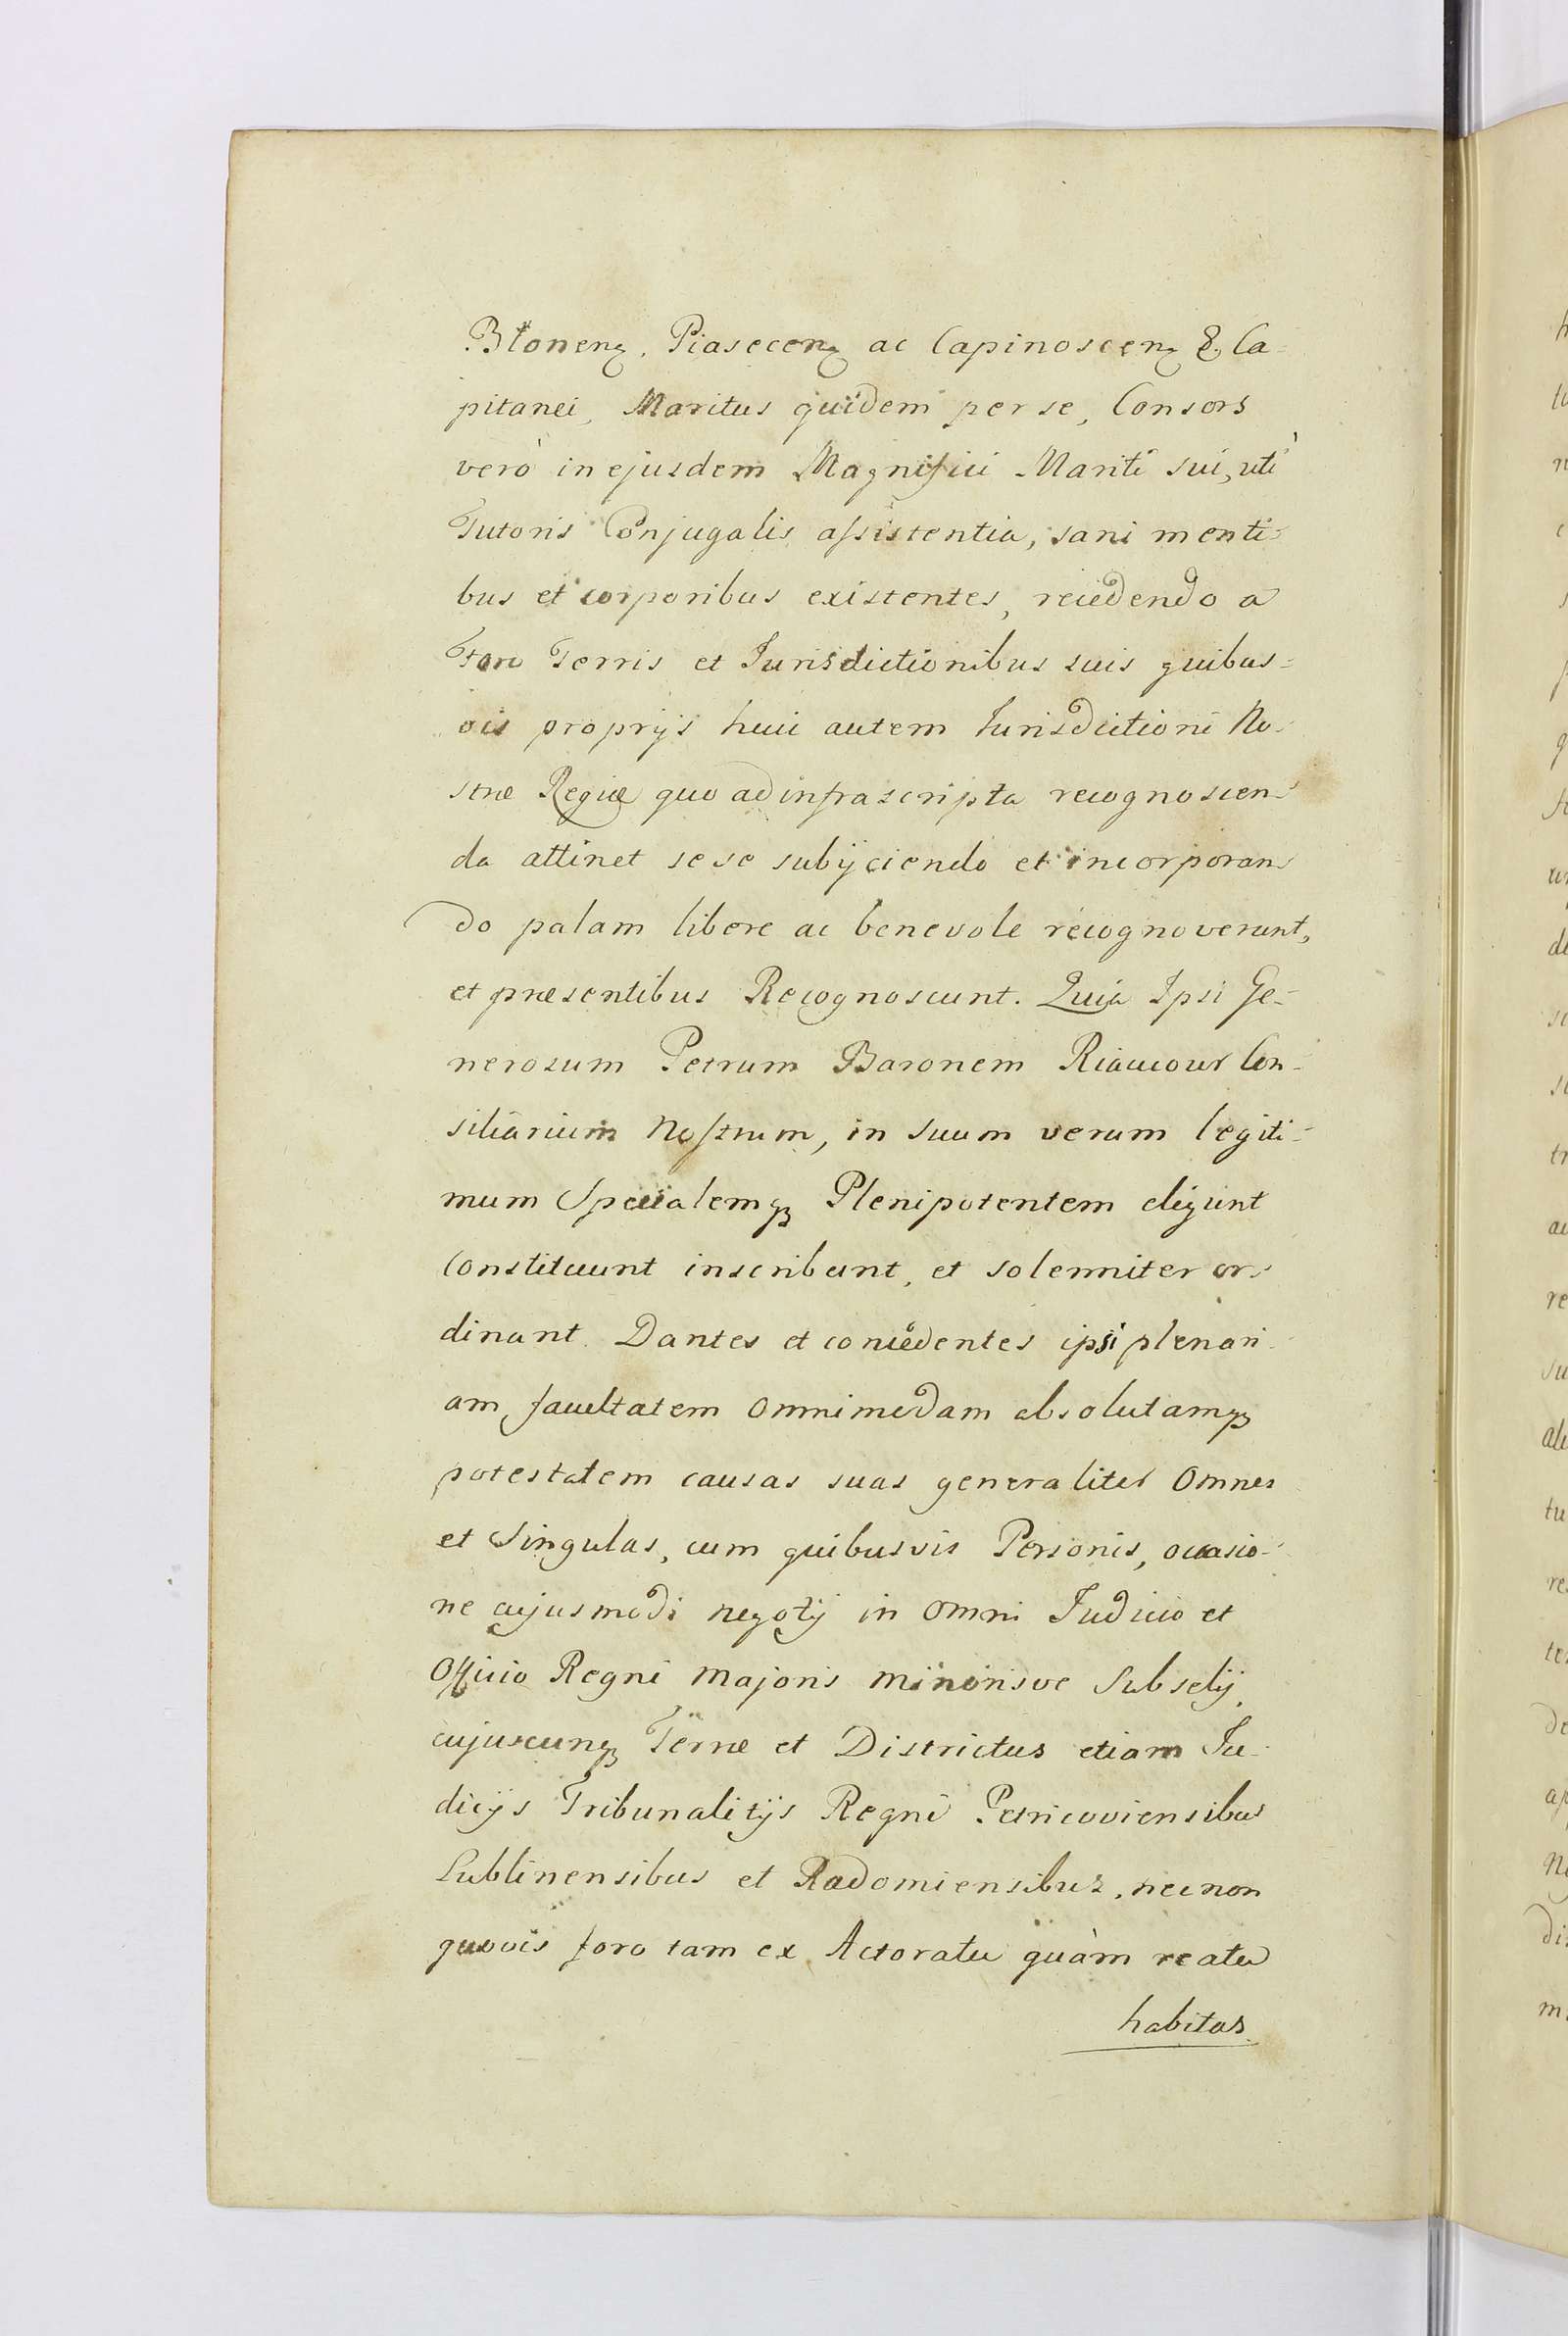 Błonenꝫ. Piasecenꝫ ac Capinoscenꝫ &. Ca-
pitanei, Maritus quidem per se, Consors
verò in ejusdem Magnifici Mariti sui, utì
Tutoris Conjugalis assistentia, sani menti-
bus et corporibus existentes, recedendo a
Foro Terris et Jurisdictionibus suis quibus-
vis proprijs huic autem Jurisdictioni No-
stræ Regiæ quo ad infrascripta recognoscen-
da attinet sese subijciendo et incorporan-
do palam libere ac benevole recognoverunt,
et præsentibus Recognoscunt. Quia Ipsi Ge-
nerosum Petrum Baronem Riaucour Con-
siliarium Nostrum, in suum verum legiti-
mum Specialemqꝫ Plenipotentem eligunt
constituunt inscribunt, et solemniter or-
dinant. Dantes et concedentes ipsi plenari-
am facultatem omnimodam absolutamqꝫ
potestatem causas suas generaliter omnes
et Singulas, cum quibusvis Personis, occasio-
ne cujusmodi negotij in omni Judicio et
Officio Regni majoris minorisve Subselij
cujuscunqꝫ Terræ et Districtus etiam Ju-
dicijs Tribunalitijs Regni Petricoviensibus
Lublinensibus et Radomiensibus, nec non
quovis foro tam ex Actoratu quàm reatu
habitas